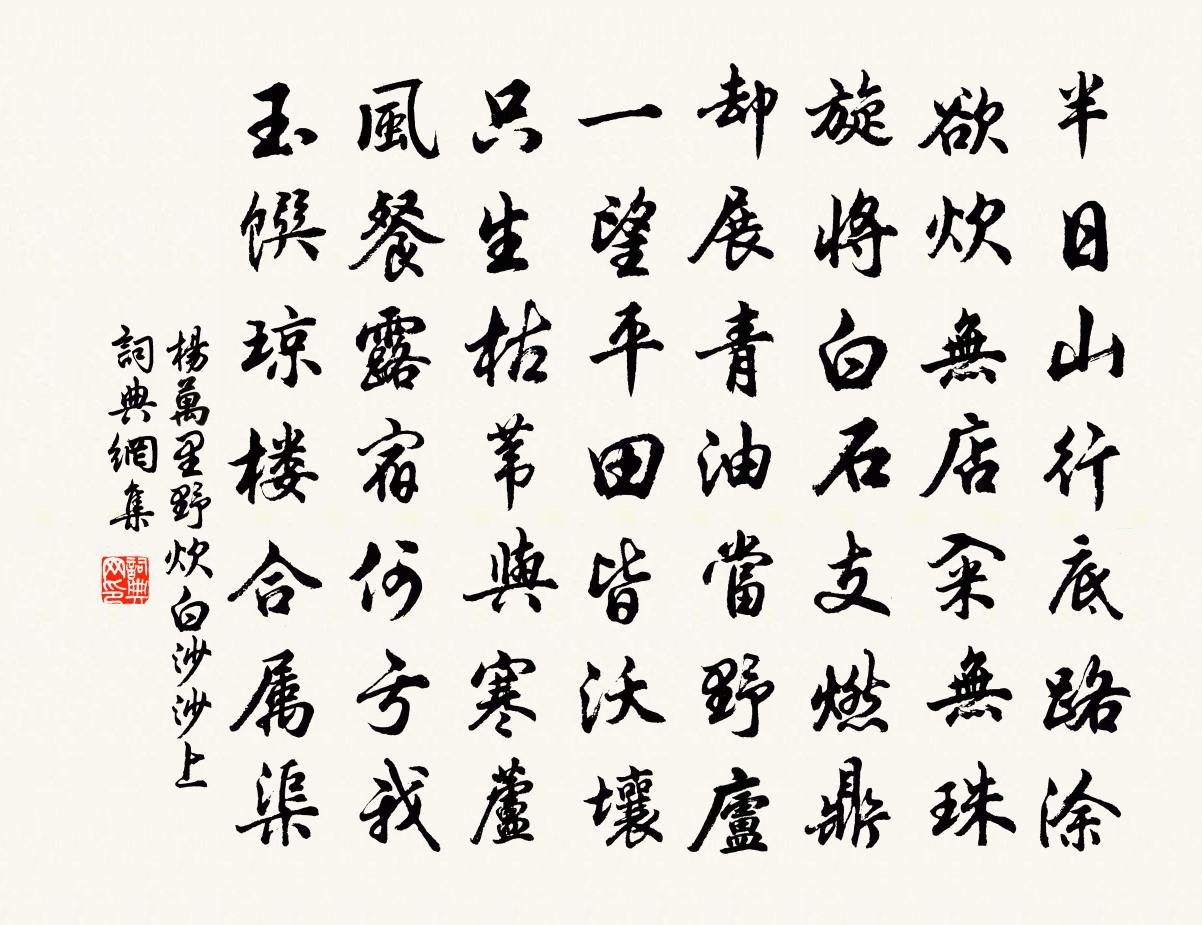 半日山行底路涂
欲炊無店籴無珠
旋將白石支燃鼎
却展青油當野廬
一望平田皆沃壤
只生枯苇與寒蘆
風餐露宿何亏我
玉馔琼楼合属渠
楊萬里野炊白沙沙上
詞典網集
詞典网印